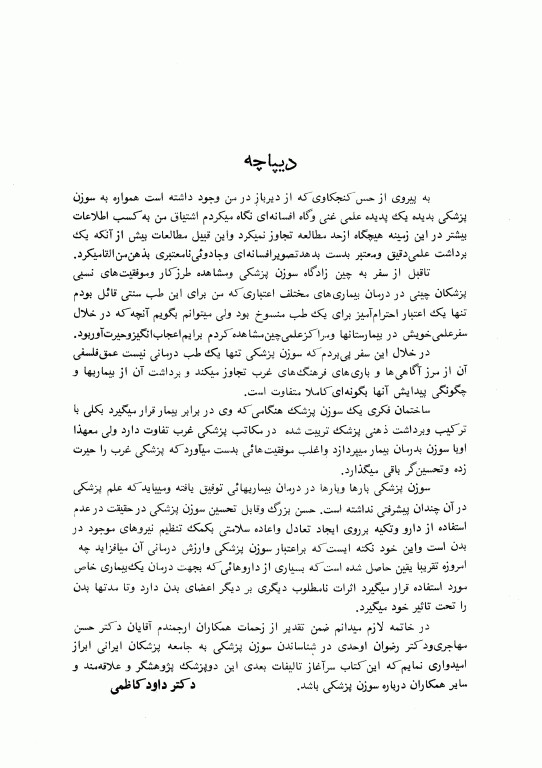 دیپاچه
به پیروی از حس کنجکاوی که از دیرباز در من وجود داشته است همواره به سوزن
پزشکی بدیده یک پدیده علمی غنی وگاه افسانه‌ای نگاه میکردم اشتیاق من به کسب اطلاعات
بیشتر در این زمینه هیچگاه ازحد مطالعه تجاوز نمیکرد واین قبیل مطالعات بیش از آنکه یک
برداشت علمی دقیق ومعتبر بدست بدهد تصویر افسانه‌ای وجادوئی نامعتبری بذهن من القامیکرد.
تاقبل از سفر به چین زادگاه سوزن پزشکی ومشاهده طرز کار وموفقیت‌های نسبی
پزشکان چینی در درمان بیماری‌های مختلف اعتباری که من برای این طب سنتی قائل بودم
تنها یک اعتبار احترام‌آمیز برای یک طب منسوخ بود ولی میتوانم بگویم آنچه که در خلال
سفرعلمی خویش در بیمارستانها ومراکز علمی چین مشاهده کردم برایم اعجاب انگیز وحیرت آوربود.
در خلال این سفر پی‌بردم که سوزن پزشکی تنها یک طب درمانی نیست عمق فلسفی
آن از مرز آگاهی‌ها و باری‌های فرهنگ‌های غرب تجاوز میکند و برداشت آن از بیماریها و
چگونگی پیدایش آنها بگونه‌ای کاملا متفاوت است.
ساختمان فکری یک سوزن پزشک هنگامی که وی در برابر بیمار قرار میگیرد بکلی با
ترکیب وبرداشت ذهنی پزشک تربیت شده در مکاتب پزشکی غرب تفاوت دارد ولی معهذا
اوبا سوزن بدرمان بیمار میپردازد واغلب موفقیت‌هائی بدست میآورد که پزشکی غرب را حیرت
زده وتحسین‌گر باقی میگذارد.
سوزن پزشکی بارها وبارها در درمان بیماریهائی توفیق یافته ومییابد که علم پزشکی
در آن چندان پیشرفتی نداشته است. حسن بزرگ وقابل تحسین سوزن پزشکی در حقیقت در عدم
استفاده از دارو وتکیه برروی ایجاد تعادل واعاده سلامتی بکمک تنظیم نیروهای موجود در
بدن است واین خود نکته ایست که براعتبار سوزن پزشکی وارزش درمانی آن میافزاید چه
امروزه تقریبا یقین حاصل شده است که بسیاری از داروهائی که بجهت درمان یک بیماری خاص
مورد استفاده قرار میگیرد اثرات نامطلوب دیگری بر دیگر اعضای بدن دارد وتا مدتها بدن
را تحت تاثیر خود میگیرد.
در خاتمه لازم میدانم ضمن تقدیر از زحمات همکاران ارجمندم آقایان دکتر حسن
مهاجری ودکتر رضوان اوحدی در شناساندن سوزن پزشکی به جامعه پزشکان ایرانی ابراز
امیدواری نمایم که این کتاب سرآغاز تالیفات بعدی این دوپزشک پژوهشگر و علاقه‌مند و
سایر همکاران درباره سوزن پزشکی باشد. دکتر داود کاظمی